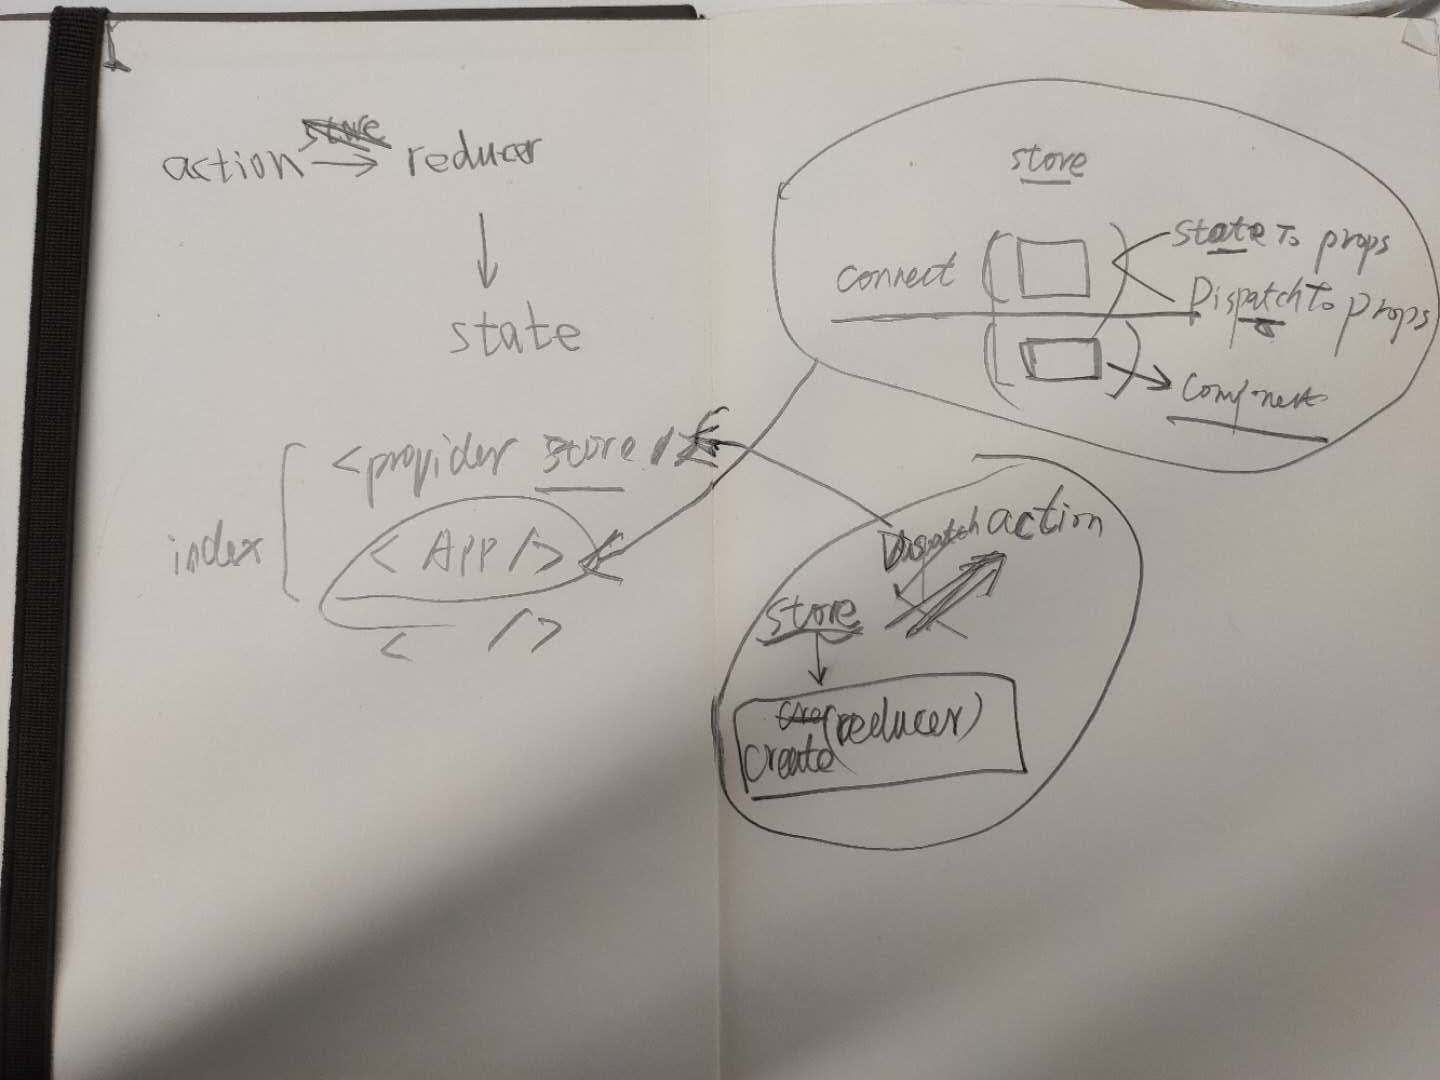 store
action → reducer
↓
state
index
<provider store
<App/>
< />
store
connect ( ) state To props
Dispatch To props
( ) → Component
Dispatch action
store
↓
cre (reducer)
create